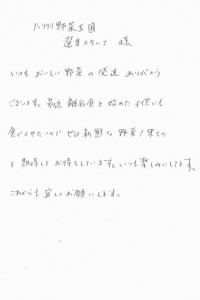 野菜王国
選果スタッフ 様
いつも おいしい 野菜 の 発送 ありがとう
ございます。最近 離乳食 を 始めた 子供 にも
食べさせたいので ぜひ 新鮮 な 野菜!果もの
を 期待して お待ちしています。いつも楽しみにしてます。
これからも 宜しく お願いします。